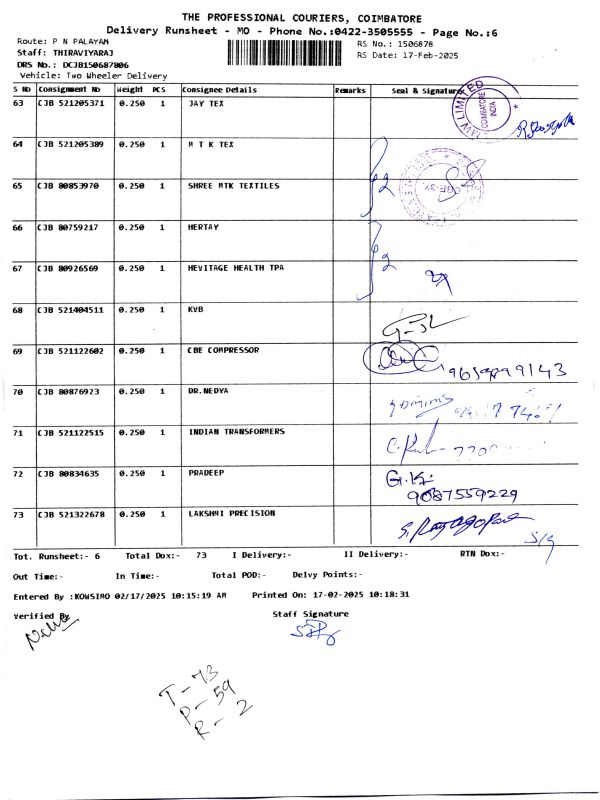 THE PROFESSIONAL COURIERS, COIMBATORE
Delivery Runsheet - MO - Phone No.:0422-3505555 - Page No.:6
Route: P N PALAYAM RS No.: 1506878
Staff: THIRAVIYARAJ RS Date: 17-Feb-2025
DRS No.: DCJB150687806
Vehicle: Two Wheeler Delivery
S No Consignment No Weight PCS Consignee Details Remarks Seal & Signature
63 CJB 521205371 0.250 1 JAY TEX
LIMITED COIMBATORE INDIA
64 CJB 521205389 0.250 1 M T K TEX
65 CJB 80853970 0.250 1 SHREE MTK TEXTILES
2
66 CJB 80759217 0.250 1 HERTAY
67 CJB 80926569 0.250 1 HEVITAGE HEALTH TPA
2
68 CJB 521404511 0.250 1 KVB
69 CJB 521122602 0.250 1 CBE COMPRESSOR
70 CJB 80876923 0.250 1 DR.NEDYA
71 CJB 521122515 0.250 1 INDIAN TRANSFORMERS
72 CJB 80834635 0.250 1 PRADEEP G.K
9087559229
73 CJB 521322678 0.250 1 LAKSHMI PRECISION S. Rajagopal
Tot. Runsheet:- 6 Total Dox:- 73 I Delivery:- II Delivery:- RTN Dox:-
Out Time:- In Time:- Total POD:- Delvy Points:-
Entered By :KOWSIMO 02/17/2025 10:15:19 AM Printed On: 17-02-2025 10:18:31
Verified By Staff Signature
T - 73
P - 59
R - 2